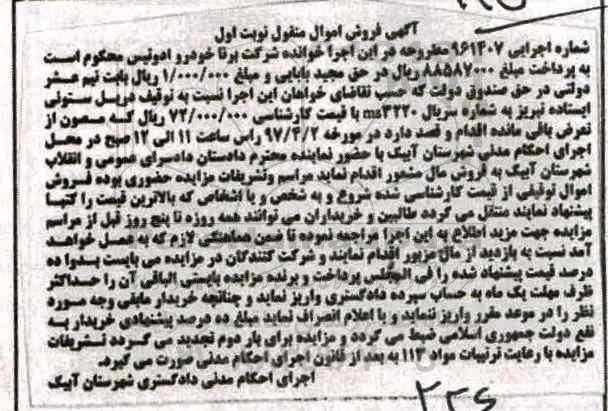 آگهی فروش اموال منقول نوبت اول
شماره اجرایی ۹۶۱۴۰۷ مطروحه در این اجرا خوانده شرکت برنا خودرو ادونیس محکوم است
به پرداخت مبلغ ۸۸۵۸۷۰۰۰ ریال در حق مجید بابایی و مبلغ ۱/۰۰۰/۰۰۰ ریال بابت نیم عشر
دولتی در حق صندوق دولت که حسب تقاضای خواهان این اجرا نسبت به توقیف دریل ستونی
ایستاده تبریز به شماره سریال ms۳۲۲۰ با قیمت کارشناسی ۷۲/۰۰۰/۰۰۰ ریال که مصون از
تعرض باقی مانده اقدام و قصد دارد در مورخه ۹۷/۴/۲ راس ساعت ۱۱ الی ۱۲ صبح در محل
اجرای احکام مدنی شهرستان آبیک با حضور نماینده محترم دادستان دادسرای عمومی و انقلاب
شهرستان آبیک به فروش مال مشعور اقدام نماید مراسم وتشریفات مزایده حضوری بوده فروش
اموال توقیفی از قیمت کارشناسی شده شروع و به شخص و یا اشخاصی که بالاترین قیمت را کتبا
پیشنهاد نمایند منتقل می گردد طالبین و خریداران می توانند همه روزه تا پنج روز قبل از مراسم
مزایده جهت مزید اطلاع به این اجرا مراجعه نموده تا ضمن هماهنگی لازم که به عمل خواهد
آمد نسبت به بازدید از مال مزبور اقدام نمایند و شرکت کنندگان در مزایده می بایست بدوا ده
درصد قیمت پیشنهاد شده را فی المجلس پرداخت و برنده مزایده بایستی الباقی آن را حداکثر
ظرف مهلت یک ماه به حساب سپرده دادگستری واریز نماید و چنانچه خریدار مابقی وجه مورد
نظر را در موعد مقرر واریز ننماید و یا اعلام انصراف نماید مبلغ ده درصد پیشنهادی خریدار به
نفع دولت جمهوری اسلامی ضبط می گردد و مزایده برای بار دوم تجدید می گردد تشریفات
مزایده با رعایت ترتیبات مواد ۱۱۳ به بعد از قانون اجرای احکام مدنی صورت می گیرد.
اجرای احکام مدنی دادگستری شهرستان آبیک